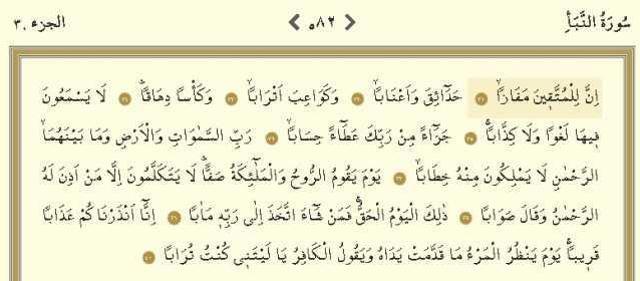 سُورَةُ النَّبَأِ ٥٨٢ الجزء ٣٠
اِنَّ لِلْمُتَّق۪ينَ مَفَازًاۙ ﴿٣١﴾ حَدَٓائِقَ وَاَعْنَابًاۙ ﴿٣٢﴾ وَكَوَاعِبَ اَتْرَابًاۙ ﴿٣٣﴾ وَكَأْسًا دِهَاقًاۜ ﴿٣٤﴾ لَا يَسْمَعُونَ
ف۪يهَا لَغْوًا وَلَا كِذَّابًاۚ ﴿٣٥﴾ جَزَٓاءً مِنْ رَبِّكَ عَطَٓاءً حِسَابًاۙ ﴿٣٦﴾ رَبِّ السَّمٰوَاتِ وَالْاَرْضِ وَمَا بَيْنَهُمَا
الرَّحْمٰنِ لَا يَمْلِكُونَ مِنْهُ خِطَابًاۚ ﴿٣٧﴾ يَوْمَ يَقُومُ الرُّوحُ وَالْمَلٰٓئِكَةُ صَفًّاۜ لَا يَتَكَلَّمُونَ اِلَّا مَنْ اَذِنَ لَهُ
الرَّحْمٰنُ وَقَالَ صَوَابًا ﴿٣٨﴾ ذٰلِكَ الْيَوْمُ الْحَقُّۚ فَمَنْ شَٓاءَ اتَّخَذَ اِلٰى رَبِّه۪ مَاٰبًا ﴿٣٩﴾ اِنَّٓا اَنْذَرْنَا كُمْ عَذَابًا
قَر۪يبًاۚ يَوْمَ يَنْظُرُ الْمَرْءُ مَا قَدَّمَتْ يَدَاهُ وَيَقُولُ الْكَافِرُ يَا لَيْتَن۪ي كُنْتُ تُرَابًا ﴿٤٠﴾